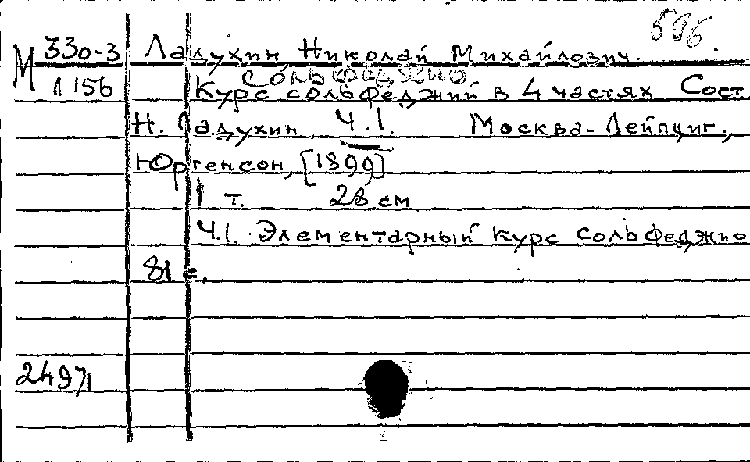 596
М 330-3 Ладухин Николай Михайлович.
Сольфеджио
Л 156 Курс сольфеджий в 4 частях Сост.
Н. Ладухин Ч.I. Москва-Лейпциг,
Юргенсон, [1899]
1 т. 28 см
Ч.I. Элементарный курс сольфеджио
81 с.
24971